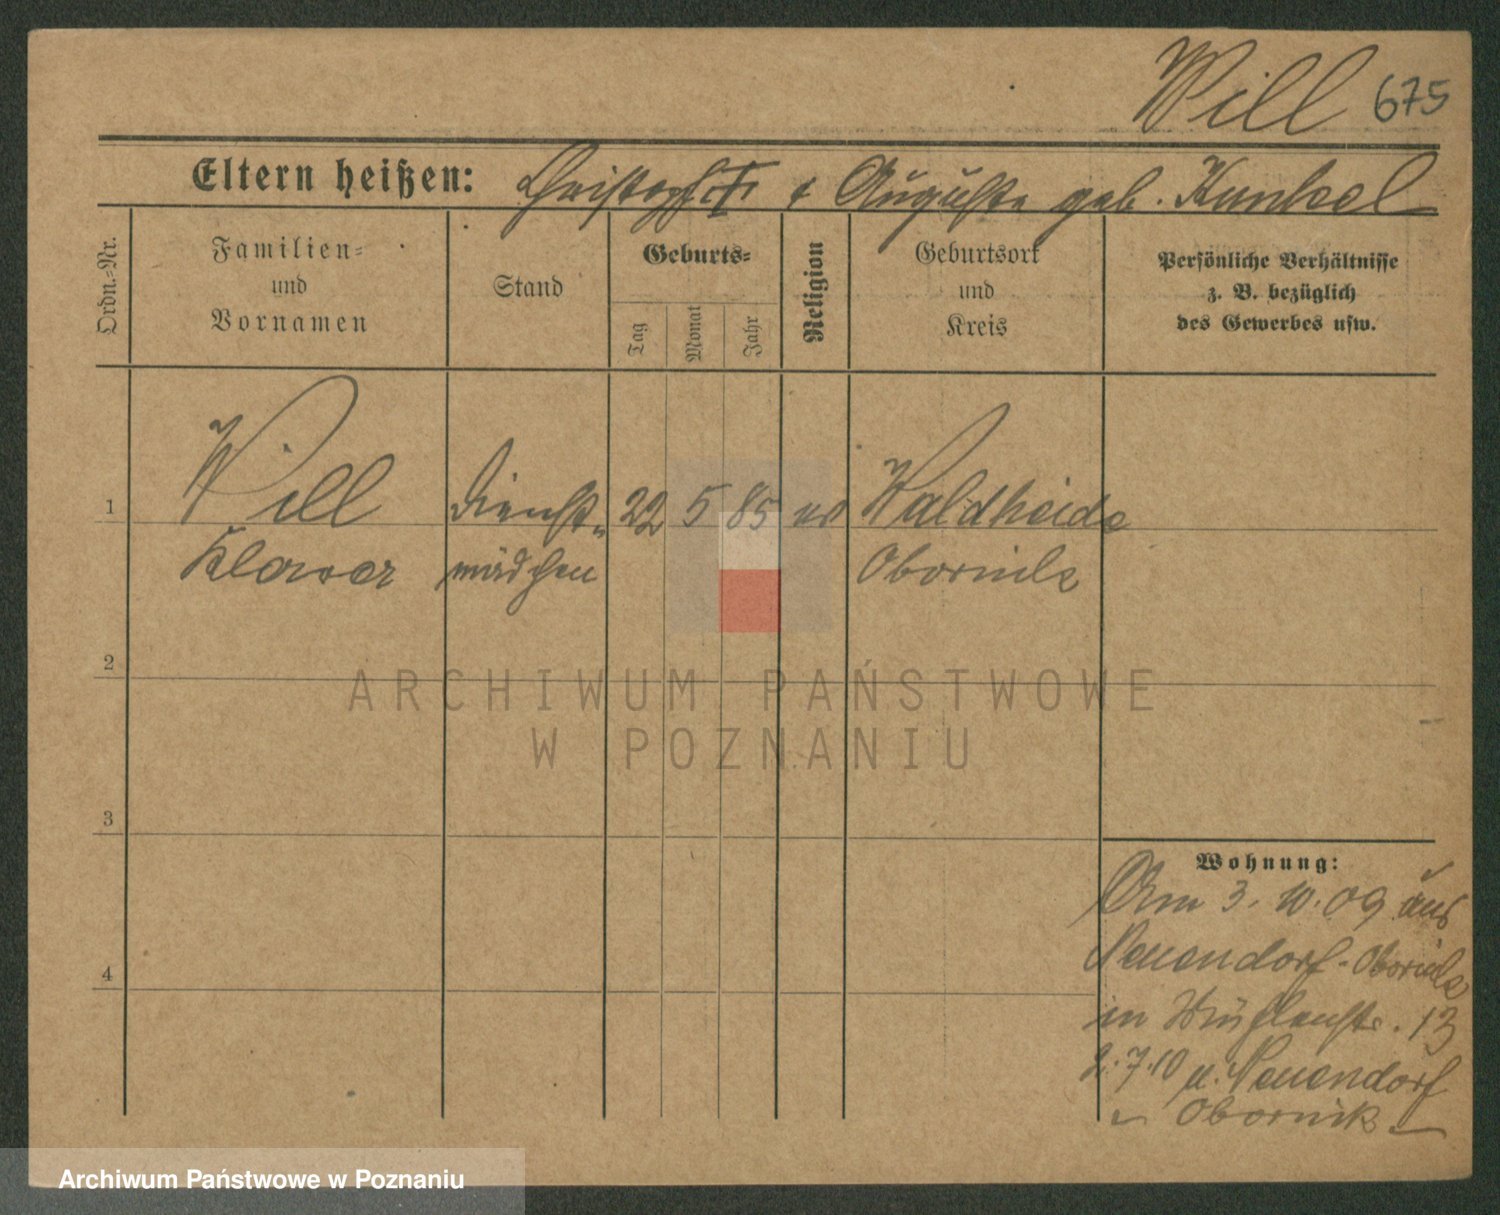 Will 675
Eltern heißen: Christoph + Auguste geb. Kunkel
Ordn.-Nr.
Familien-
und
Vornamen
Stand
Geburts-
Tag
Monat
Jahr
Religion
Geburtsort
und
Kreis
Persönliche Verhältnisse
z. B. bezüglich
des Gewerbes usw.
1 Will Dienst- 22 5 85 ev Waldheide
mädchen Obornik
2
3
4
Wohnung:
Am 3.10.09 aus
Neuendorf-Obornik
in Mühlenstr. 13
2.7.10 n. Neuendorf
Obornik
ARCHIWUM PAŃSTWOWE
W POZNANIU
Archiwum Państwowe w Poznaniu